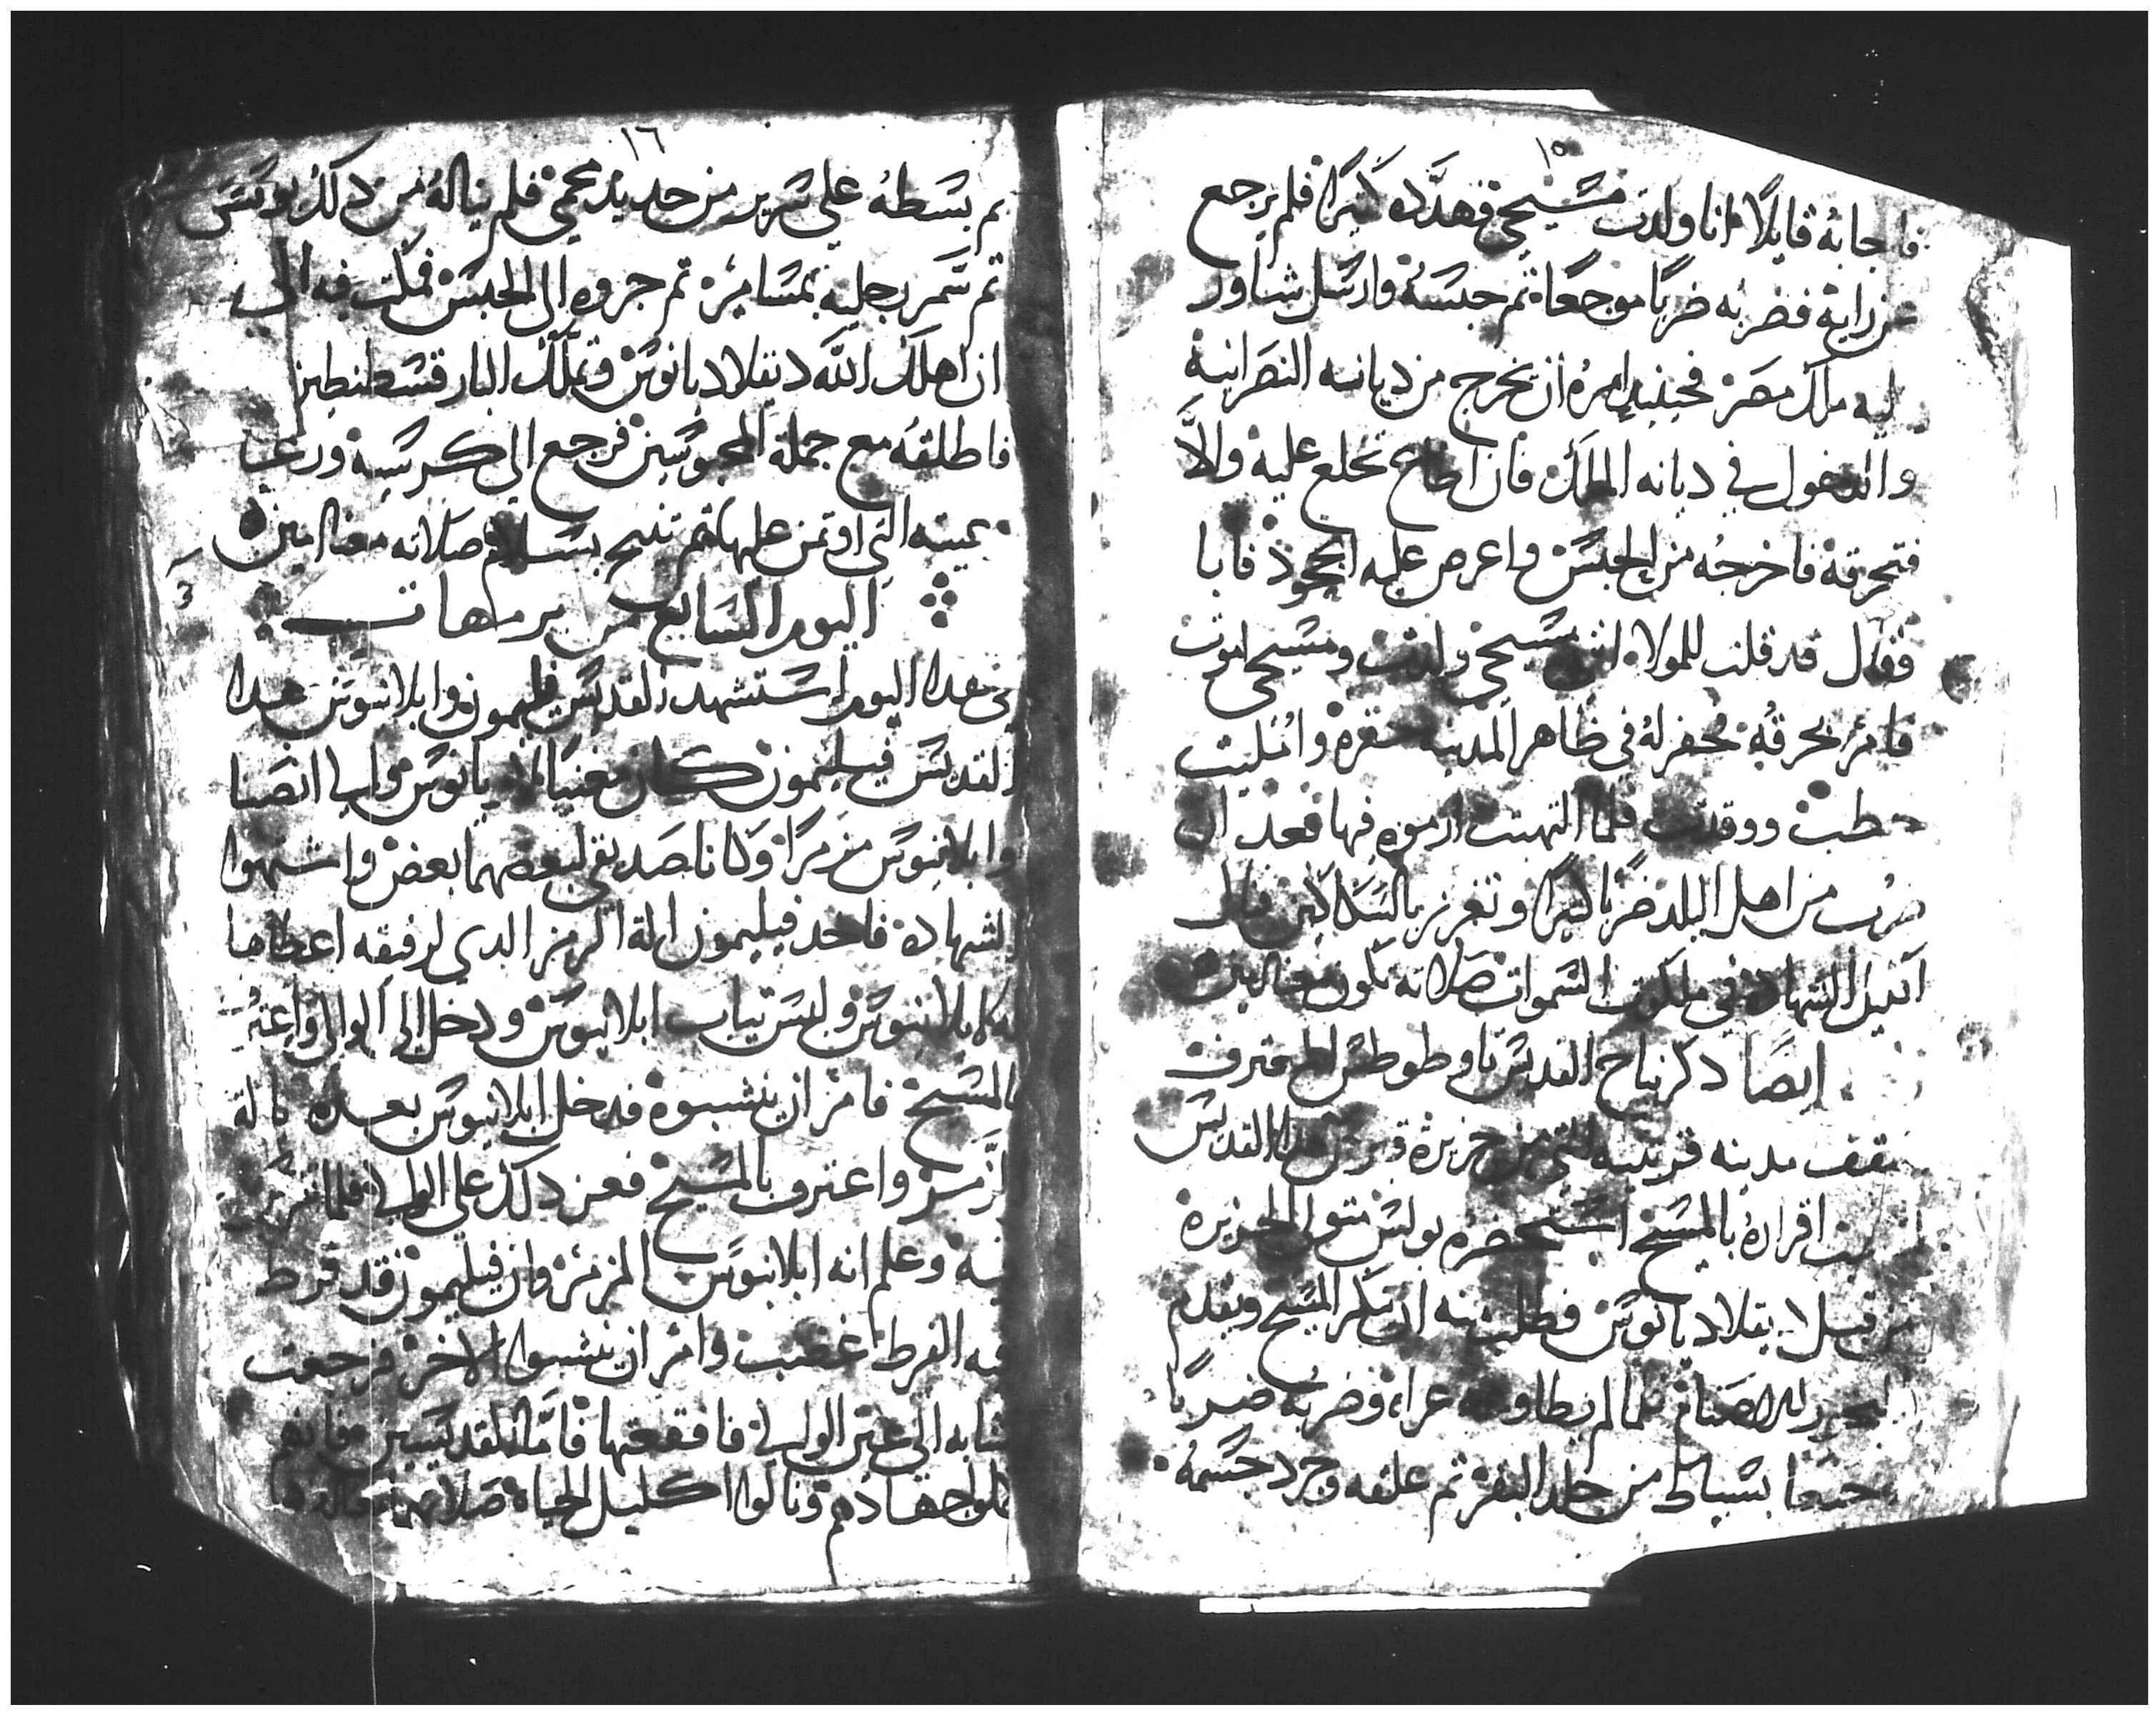 ١٥
فاجابه قايلًا انا ولدت مسيحي فهدَّده كثيرًا فلم يرجع
عن رايه فضربه ضربًا موجعًا ثم حبسه وارسل شاور
ليه ملك مصر فحينيد امره ان يخرج من ديانه النصرانية
والدخول في ديانه الملك فان اطاع تخلع عليه والاَّ
فتحرقه فاخرجه من الحبس واعرص عليه الجحود فابا
وقال قد قلت للمولاه انني مسيحي ولدت ومسيحي اموت
فامر بحرقه فحفر له في ظاهر المدينه حفره وامُليت
حطب ووقدت فلما التهبت ارموه فيها فعد ان
ضرب من اهل البلد ضربًا كثيرًا وتغرير بالسكاكين فنال
اكليل الشهاده في ملكوت السموات صلاته تكون معنا امين
ايضًا دكر نياح القديس تاوضوطس المعترف
سقف مدينه قرينيه التي من جزيرة قبرس هدا القديس
اقراره بالمسيح استحضره يوليس متولي الجزيرة
من قبل ديقلاديانوس فطلب منه ان ينكر المسيح ويقدم
البخور للاصنام فلما لم يطاوعه عراه وضربه ضربًا
وجيعًا بسياط من جلد البقر ثم علقه وجرد جسمه
١٦
ثم بسطه على سرير من حديد محمي فلم يناله من دلك بوس
ثم سمر رجليه بمسامير ثم جروه الى الحبس فمكت فيه الى
ان اهلك الله ديقلاديانوس وتملك البار قسطنطين
فاطلقه مع جملة المحبوسين فرجع الي كرسيه ورعى
رعيته التي اوتمن عليها ثم تنيح بسلام صلاته معنا امين
اليوم السابع من برمهات
في هدا اليوم استشهد القديس فليمون وابلانيوس هدا
القديس فيليمون كان مغنيًا لاريانوس والي انصنا
وابلانيوس مزمرًا وكانا صديقي لبعضهما بعض واشتهوا
الشهاده فاخد فيليمون الة الزمر الدي لرفيقه اعطاها
له ابلانيوس ولبس تياب ابلانيوس ودخل الى الوالي واعترف
بالمسيح فامر ان ينشبوه فدخل ابلانيوس بعده بالة
الزَّمر واعترف بالمسيح فعز دلك علي الوالي فلما
فيه وعلم انه ابلانيوس المزمر وان فيليمون قد فرط
فيه الفرط غضب وامر ان ينشبوا الاخر فرجعت
نشابه الي عين الوالي فافقعتها فامَّا القديسين فانهم
كملوا جهادهم ونالوا اكليل الحياه صلاتهما